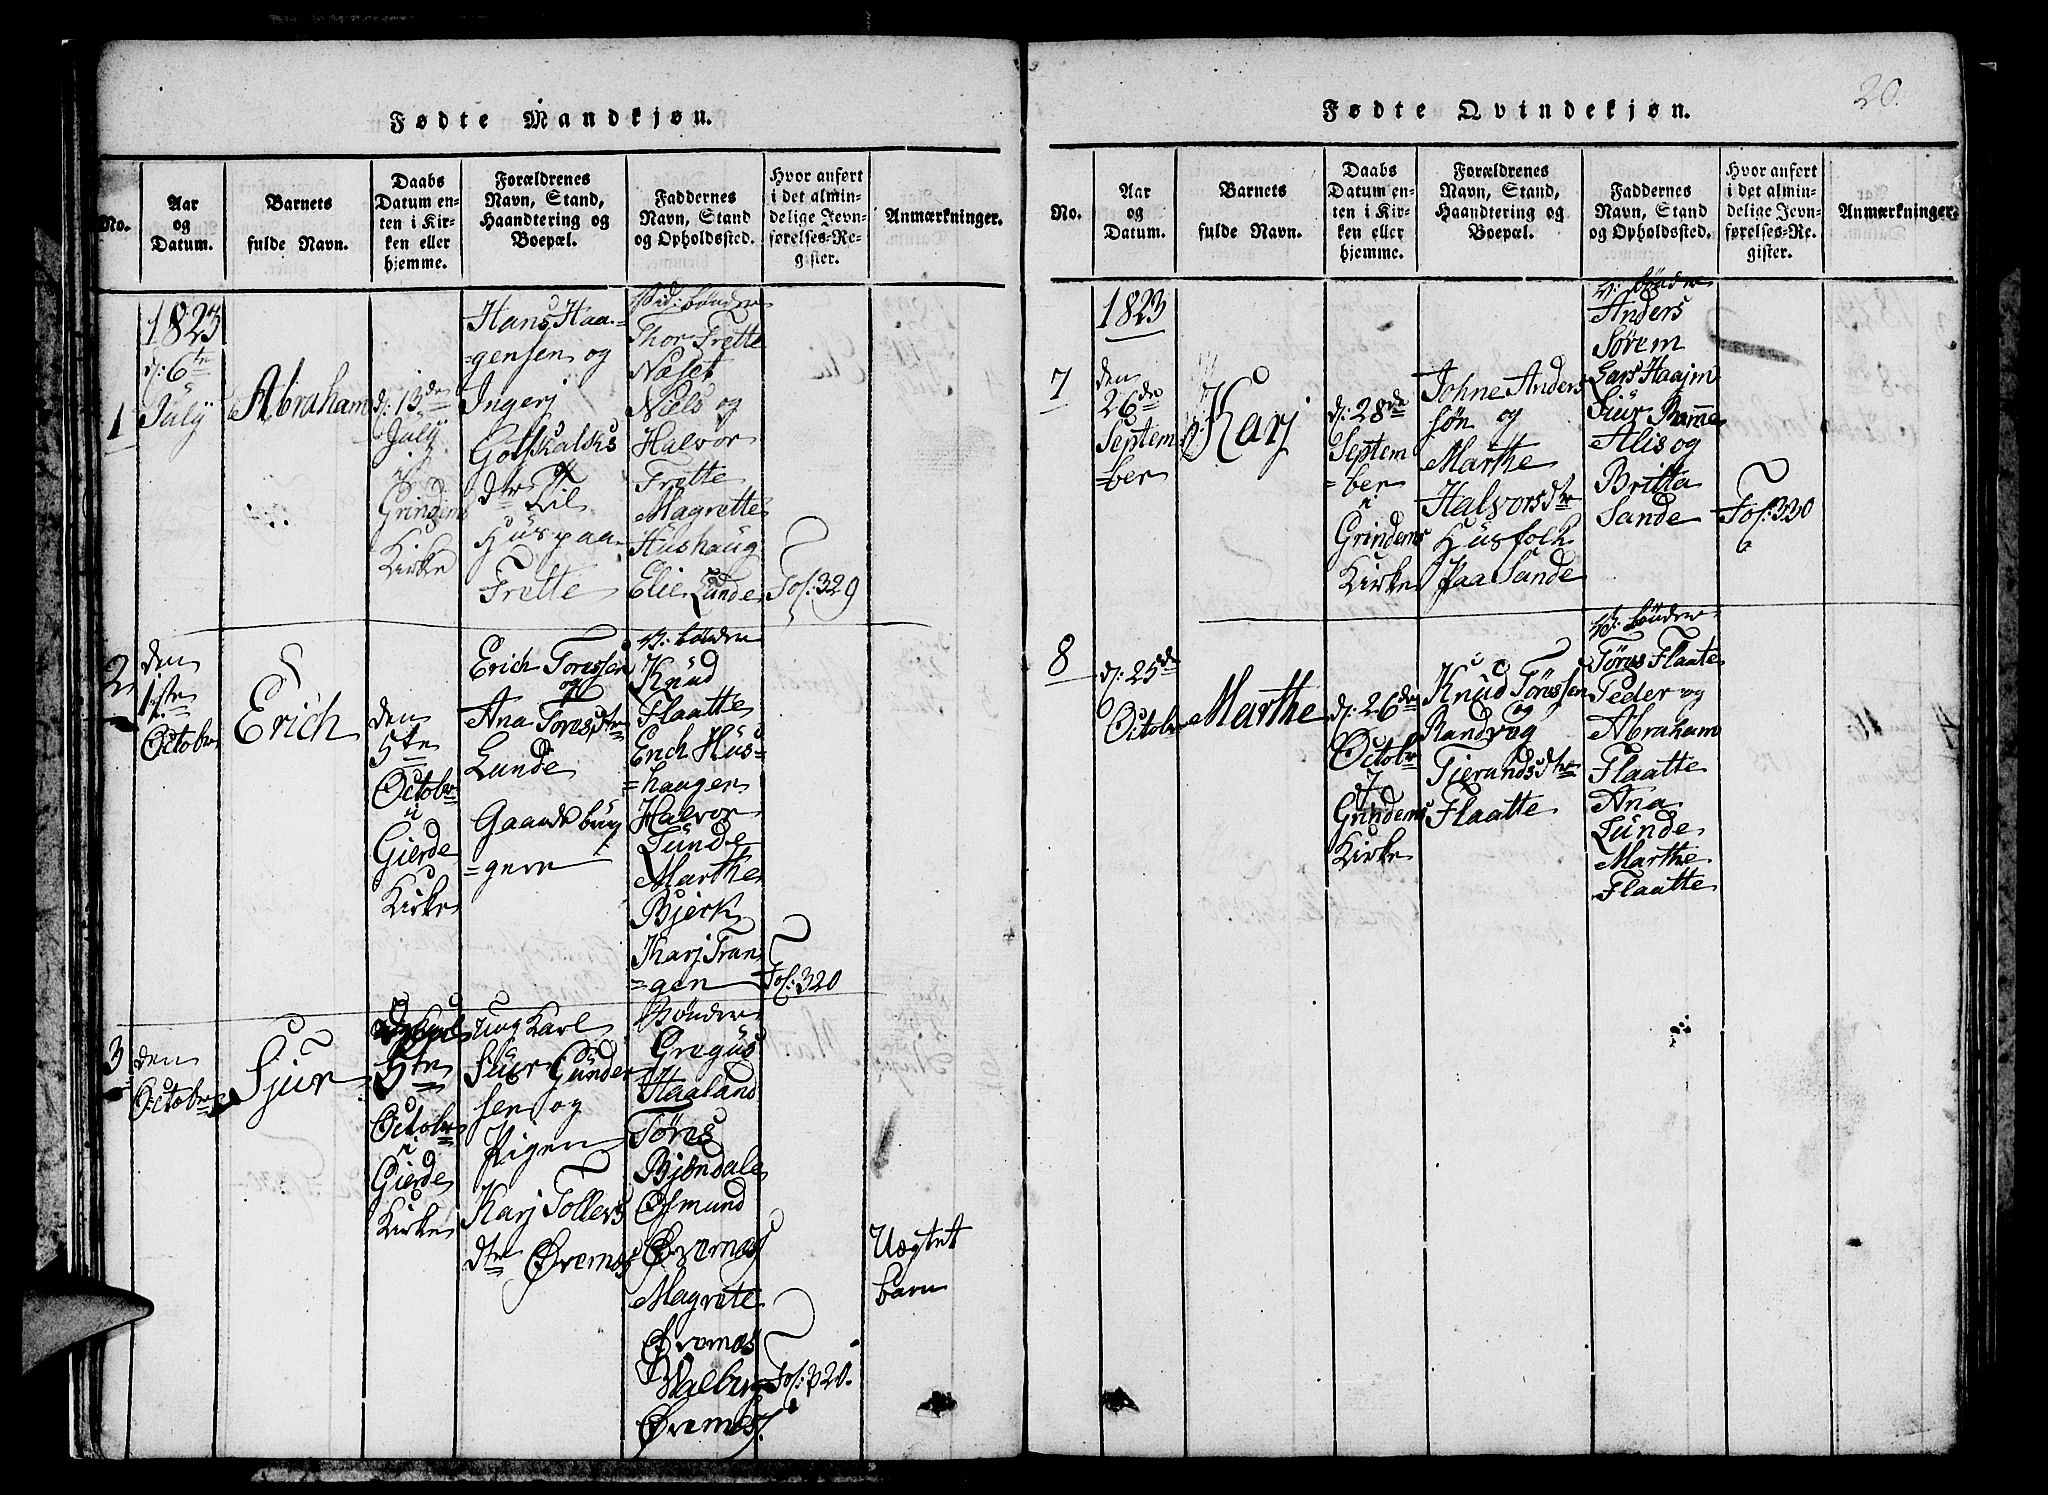 Fødte Mandkjøn.
No.
Aar
og
Datum.
Barnets
fulde Navn.
Daabs
Datum en-
ten i Kir-
ken eller
hjemme.
Forældrenes
Navn, Stand,
Haandtering og
Boepæl.
Faddernes
Navn, Stand
og Opholdssted.
Hvor anført
i det almin-
delige Jevn-
førelses-Re-
gister.
Anmærkninger.
1
1823
d: 6te
July
Abraham
d: 13de
July
i
Grindens
Kirke
Hans Haa=
=gensen og
Ingerj
Gotskalks
dtr
Huspaa
Frette
bønder
Thor Frette
Niels og
Halvor
Frette
Magrette
Hushaug
Elie Lunde
Fol: 329
2
den
1ste
October
Erich
den
5te
October
i
Gierde
Kirke
Erich Toressen
og
Ana Toresdtr
Lunde
Gaardsbrug
=gere
bønder
Knud
Flaatte
Erich Hus=
=haugen
Halvor
Lunde
Marthe
Bjerk
Karj Tran
=gen
Fol: 320
3
den
October
Sjur
5te
October
i
Gierde
Kirke
ung Karl
Siur Gunder
sen og
Pigen
Karj Tollers
dtr Øremæs
Bønder
Gregus
Haaland
Tøres
Bjøndale
Osmund
Øvernæs
Magrete
Øvernæs
Walbug
Øvernæs
Fol: 320.
Uægtet
barn
Fødte Qvindekjøn.
20.
No.
Aar
og
Datum.
Barnets
fulde Navn.
Daabs
Datum en-
ten i Kir-
ken eller
hjemme.
Forældrenes
Navn, Stand,
Haandtering og
Boepæl.
Faddernes
Navn, Stand
og Opholdssted.
Hvor anført
i det almin-
delige Jevn-
førelses-Re-
gister.
Anmærkninger.
7
1823
den
26de
Septem
=ber
Karj
d: 28de
Septem
=ber
i
Grindens
Kirke
Johne Anders
søn og
Marthe
Halvorsdtr
Husfolk
paa Sande
bønder
Anders
Sørem
Lars Haajm
Siur Ramme
Alis og
Britta
Sande
Fol: 320
8
d: 25de
October
Marthe
d: 26de
October
i
Grindens
Kirke
Knud Tøressen
og
Randveg
Tjerandsdtr
Flaatte
bønder
Tøres Flaate
Peder og
Abraham
Flaatte
Ana
Lunde
Marthe
Flaatte